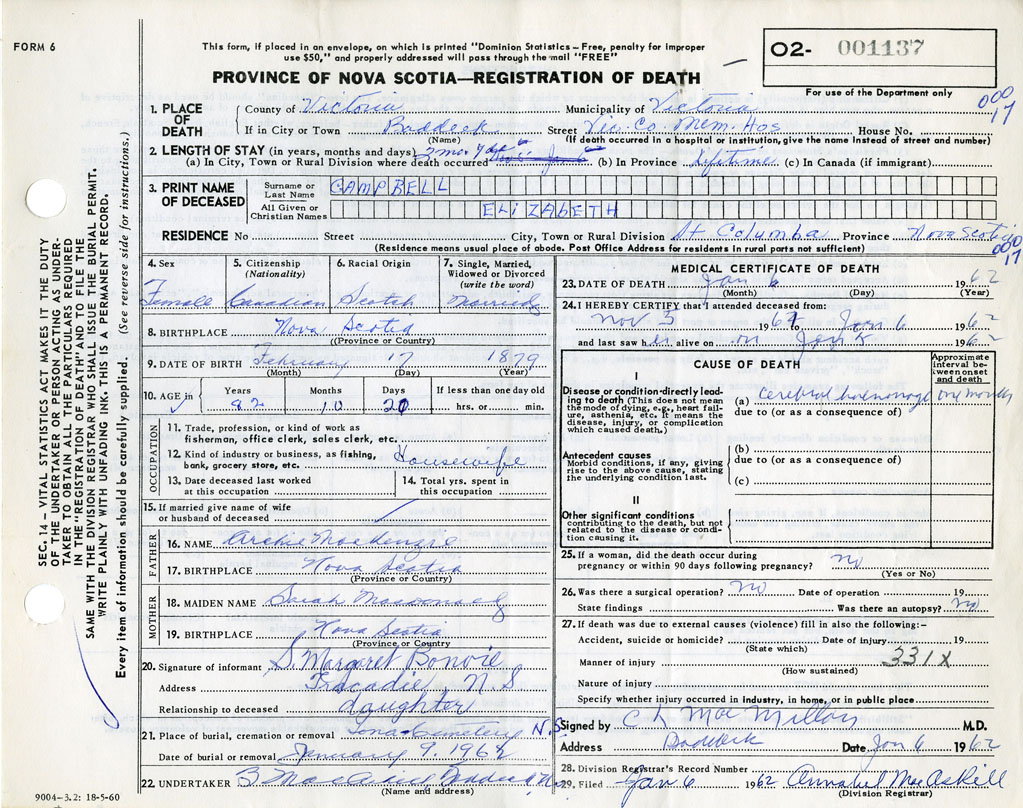 FORM 6
This form, if placed in an envelope, on which is printed "Dominion Statistics – Free, penalty for improper
use $50," and properly addressed will pass through the mail "FREE"
PROVINCE OF NOVA SCOTIA—REGISTRATION OF DEATH
02- 001137
For use of the Department only
000
17
SEC. 14 – VITAL STATISTICS ACT MAKES IT THE DUTY
OF THE UNDERTAKER OR PERSON ACTING AS UNDER-
TAKER TO OBTAIN ALL THE PARTICULARS REQUIRED
IN THE "REGISTRATION OF DEATH" AND TO FILE THE
SAME WITH THE DIVISION REGISTRAR WHO SHALL ISSUE THE BURIAL PERMIT.
WRITE PLAINLY WITH UNFADING INK. THIS IS A PERMANENT RECORD.
Every item of information should be carefully supplied. (See reverse side for instructions.)
1. PLACE OF DEATH
County of Victoria Municipality of Victoria
If in City or Town Baddeck Street Vic. Co. Mem. Hos House No.
(Name) (If death occurred in a hospital or institution, give the name instead of street and number)
2. LENGTH OF STAY (in years, months and days)
(a) In City, Town or Rural Division where death occurred 2 mo. (b) In Province Lifetime (c) In Canada (if immigrant)
3. PRINT NAME OF DECEASED
Surname or Last Name CAMPBELL
All Given or Christian Names ELIZABETH
RESIDENCE No Street City, Town or Rural Division St Columba Province Nova Scotia
(Residence means usual place of abode. Post Office Address for residents in rural parts not sufficient)
000
17
4. Sex 5. Citizenship (Nationality) 6. Racial Origin 7. Single, Married, Widowed or Divorced (write the word)
Female Canadian Scotch Married
8. BIRTHPLACE Nova Scotia
(Province or Country)
9. DATE OF BIRTH February 17 1879
(Month) (Day) (Year)
10. AGE in Years Months Days If less than one day old
82 10 20 hrs. or min.
OCCUPATION
11. Trade, profession, or kind of work as
fisherman, office clerk, sales clerk, etc.
12. Kind of industry or business, as fishing,
bank, grocery store, etc. Housewife
13. Date deceased last worked
at this occupation
14. Total yrs. spent in
this occupation
15. If married give name of wife
or husband of deceased
FATHER
16. NAME Archie MacKenzie
17. BIRTHPLACE Nova Scotia
(Province or Country)
MOTHER
18. MAIDEN NAME Sarah Macdonald
19. BIRTHPLACE Nova Scotia
(Province or Country)
20. Signature of informant S. Margaret Bonvie
Address Tracadie, N.S
Relationship to deceased daughter
21. Place of burial, cremation or removal Iona Cemetery N.S
Date of burial or removal January 9, 1962
22. UNDERTAKER
(Name and address)
9004–3.2: 18-5-60
MEDICAL CERTIFICATE OF DEATH
23. DATE OF DEATH Jan 6 1962
(Month) (Day) (Year)
24. I HEREBY CERTIFY that I attended deceased from:
Nov 3 1961 to Jan 6 1962
and last saw her alive on Jan 1962
CAUSE OF DEATH
Approximate interval between onset and death
I
Disease or condition directly leading to death (This does not mean the mode of dying, e.g., heart failure, asthenia, etc. It means the disease, injury, or complication which caused death.)
(a) cerebral haemorrhage two months
due to (or as a consequence of)
Antecedent causes
Morbid conditions, if any, giving rise to the above cause, stating the underlying condition last.
(b)
due to (or as a consequence of)
(c)
II
Other significant conditions
contributing to the death, but not related to the disease or condition causing it.
25. If a woman, did the death occur during
pregnancy or within 90 days following pregnancy? No
(Yes or No)
26. Was there a surgical operation? No Date of operation 19
State findings Was there an autopsy? No
27. If death was due to external causes (violence) fill in also the following:–
Accident, suicide or homicide? Date of injury 19
(State which)
Manner of injury 331X
(How sustained)
Nature of injury
Specify whether injury occurred in industry, in home, or in public place
Signed by C L MacMillan M.D.
Address Baddeck Date Jan 6 1962
28. Division Registrar's Record Number
29. Filed Jan 6 1962 Annabel MacAskill
(Division Registrar)